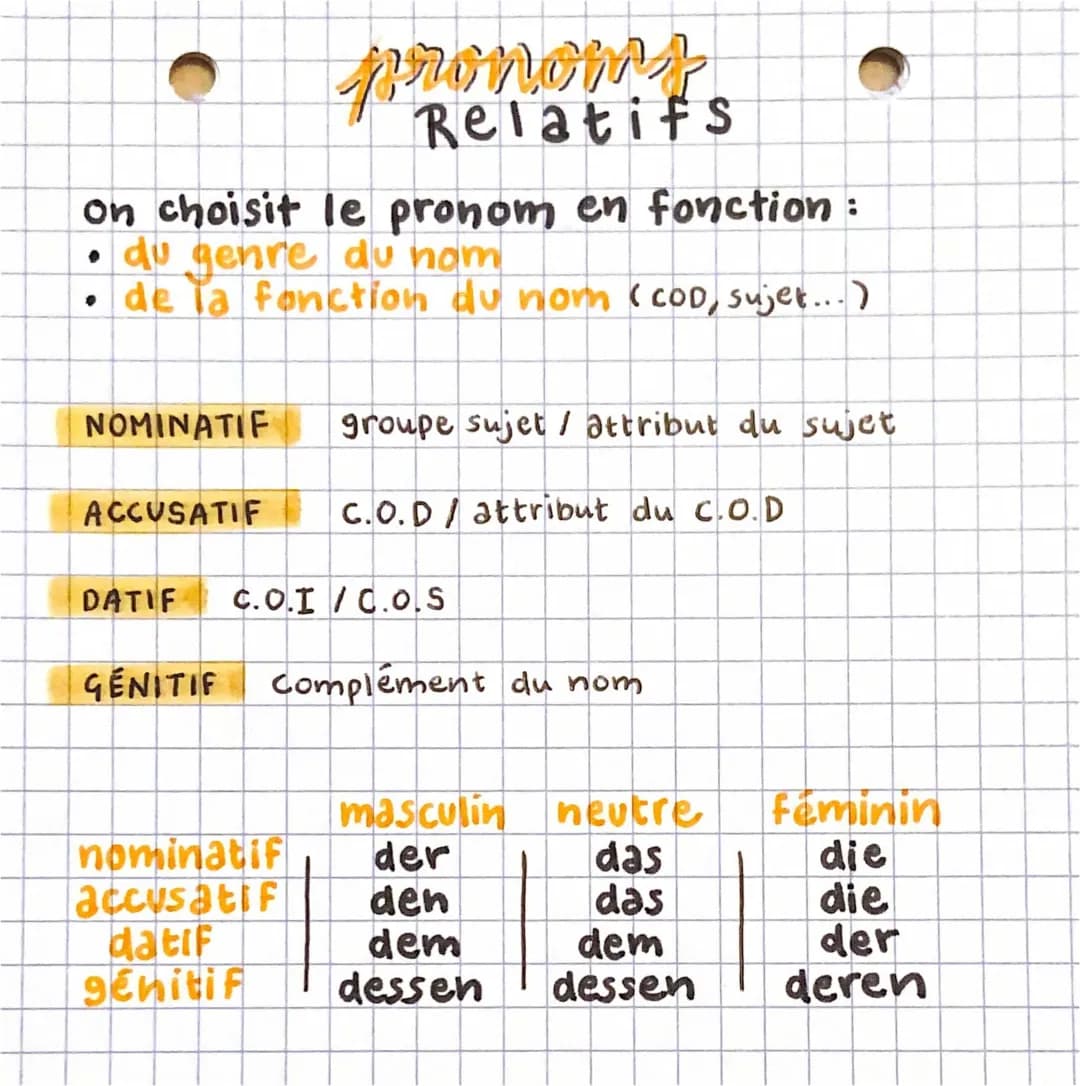 pronoms
Relatifs
on choisit le pronom en fonction :
• du genre du nom
• de la fonction du nom (COD, sujet...)
NOMINATIF groupe sujet / attribut du sujet
ACCUSATIF C.O.D / attribut du C.O.D
DATIF C.O.I / C.O.S
GÉNITIF Complément du nom
masculin neutre féminin
nominatif der das die
accusatif den das die
datif dem dem der
génitif dessen dessen deren